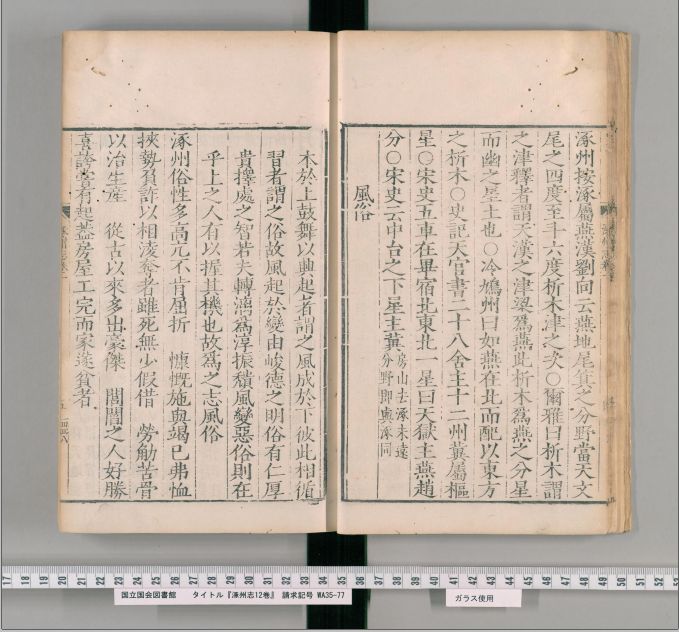 涿州按涿屬燕漢劉向云燕地尾箕之分野當天文
尾之四度至斗六度析木津之次〇爾雅曰析木謂
之津釋者謂天漢之津梁爲燕此析木爲燕之分星
而幽之星土也〇冷鳩州曰如燕在北而配以東方
之析木〇史記天官書二十八舍主十二州冀屬樞
星〇宋史五車在畢宿北東北一星曰天獄主燕趙
分〇宋史云中台之下星主冀房山去涿未遠
分野卽與涿同
風俗
本於上鼓舞以興起者謂之風成於下彼此相循
習者謂之俗故風起於變由峻德之明俗有仁厚
貴擇處之智若夫轉漓爲淳振積風變惡俗則在
乎上之人有以握其機也故爲之志風俗
涿州俗性多高亢不肯屈折 慷慨施與竭己弗恤
挾勢負詐以相淩奪者雖死無少假借 勞觔苦骨
以治生産 從古以來多出豪傑 閭閻之人好勝
喜誇嘗有起蓋房屋工完而家遂貧者
17 18 19 20 21 22 23 24 25 26 27 28 29 30 31 32 33 34 35 36 37 38 39 40 41 42 43 44 45 46 47 48 49 50 51 52
国立国会図書館 タイトル『涿州志12巻』 請求記号 WA35-77
ガラス使用